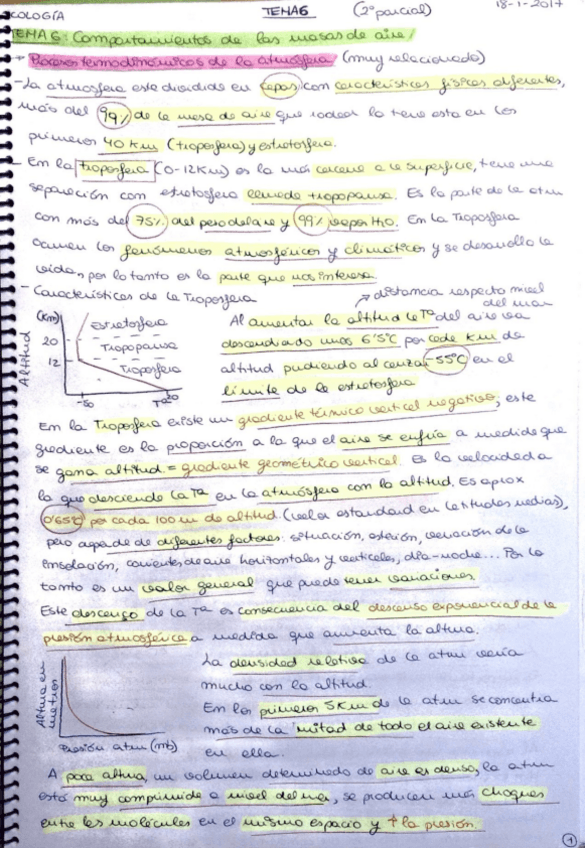 ECOLOGÍA TEMA6 (2º parcial) 18-1-2017
TEMA 6: Comportamientos de las masas de aire/
→ Procesos termodinámicos de la atmósfera/ (muy relacionado)
- La atmosfera esta dividida en capas con características físicas diferentes,
más del 99% de la masa de aire que rodea la tierra esta en los
primeros 40 Km (troposfera) y estratosfera.
- En la troposfera (0-12Km) es la más cercana a la superficie, tiene una
separación con estratosfera llamada tropopausa. Es la parte de la atm
con más del 75% del peso del aire y 99% vapor H2O. En la Troposfera
ocurren los fenómenos atmosféricos y climáticos y se desarrolla la
vida, por lo tanto es la parte que nos interesa
- Características de la Troposfera
↗ distancia respecto nivel del mar
(Km)
Altitud
20
12
Estratosfera
Tropopausa
Troposfera
-50
Tª 20
Al aumentar la altitud la Tª del aire va
descendiendo unos 6'5ºC por cada Km de
altitud pudiendo alcanzar -55ºC en el
límite de la estratosfera
En la Troposfera existe un gradiente térmico vertical negativo; este
gradiente es la proporción a la que el aire se enfría a medida que
se gana altitud = gradiente geométrico vertical. Es la velocidad a
la que desciende la Tª en la atmósfera con la altitud. Es aprox
0'65ºC por cada 100 m de altitud. (valor standard en latitudes medias),
pero depende de diferentes factores: situación, estación, variación de la
insolación, corrientes de aire horizontales y verticales, día-noche... Por lo
tanto es un valor general que puede tener variaciones.
Este descenso de la Tª es consecuencia del descenso exponencial de la
presión atmosférica a medida que aumenta la altura.
Altura en metros
Presión atm (mb)
La densidad relativa de la atm varía
mucho con la altitud
En los primeros 5Km de la atm se concentra
más de la mitad de todo el aire existente
en ella.
A poca altura, un volumen determinado de aire es denso, la atm
está muy comprimida a nivel del mar, se producen más choques
entre las moléculas en el mismo espacio y ↑ la presión.
1